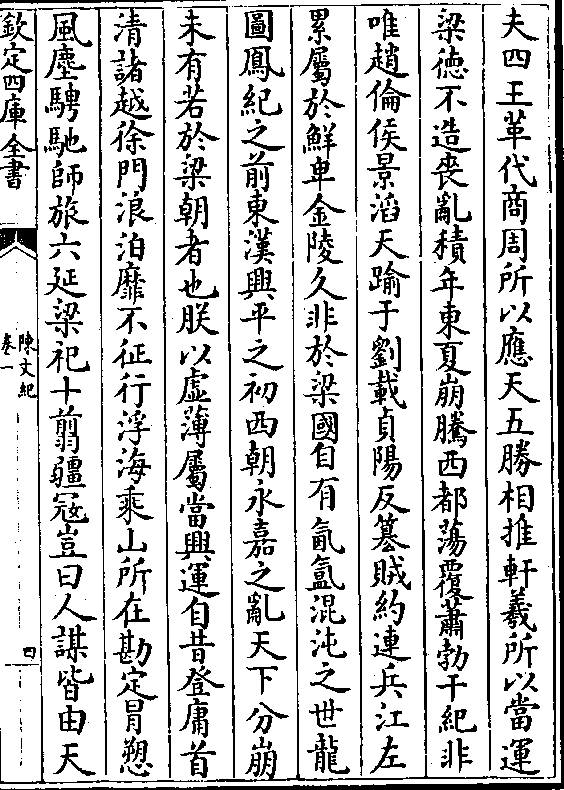 夫四王革代商周所以應天五勝相推軒羲所以當運
梁徳不造喪亂積年東夏崩騰西都蕩覆蕭勃干紀非
唯趙倫侯景滔天踰于劉載貞陽反簒賊約連兵江左
累屬於鮮卑金陵久非於梁國自有氤氳混沌之世龍
圖鳳紀之前東漢興平之初西朝永嘉之亂天下分崩
未有若於梁朝者也朕以虚薄屬當興運自昔登庸首
清諸越徐門浪泊靡不征行浮海乘山所在勘定冒愬
風塵騁馳師旅六延梁祀十翦疆寇豈曰人謀皆由天
欽定四庫全書
陳文紀
卷一
四